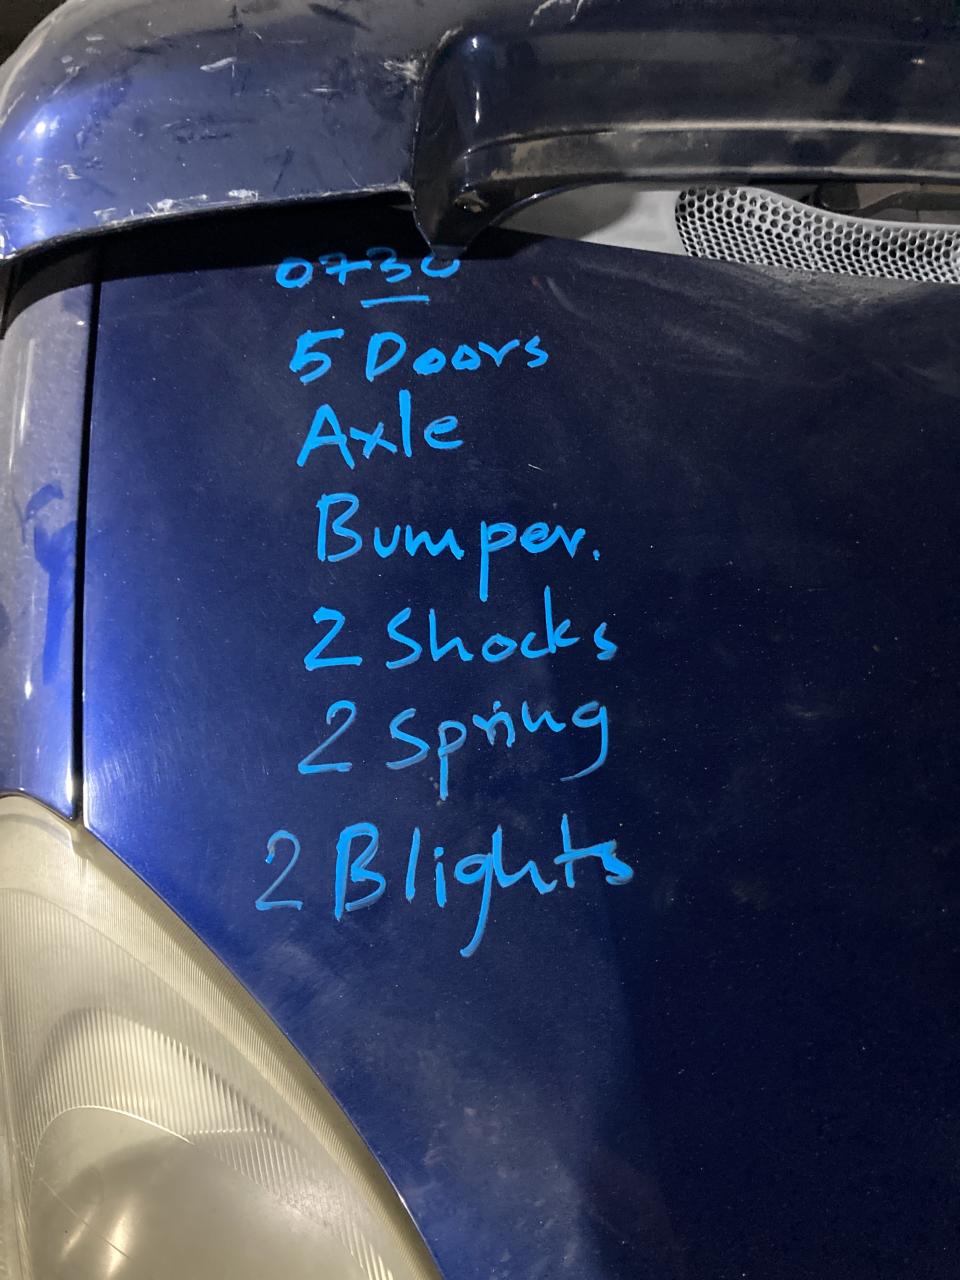 0730
5 Doors
Axle
Bumper.
2 Shocks
2 Spring
2 Blights